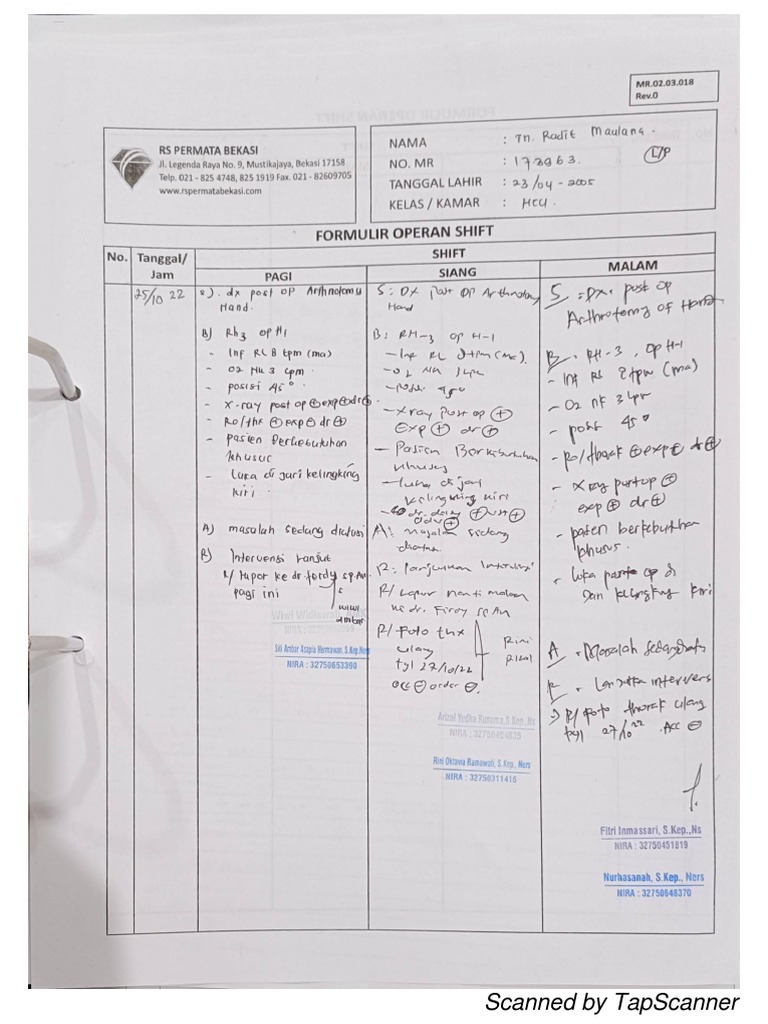 MR.02.03.018
Rev.0
RS PERMATA BEKASI
Jl. Legenda Raya No. 9, Mustikajaya, Bekasi 17158
Telp. 021 - 825 4748, 825 1919 Fax. 021 - 82609705
www.rspermatabekasi.com
NAMA : Tn. Radit Maulana.
NO. MR : L/P
TANGGAL LAHIR : 23/04-2005
KELAS / KAMAR : HCU.
FORMULIR OPERAN SHIFT
No.
Tanggal/
Jam
SHIFT
PAGI
SIANG
MALAM
25/10 22
S). dx post op Arthrotomy
Hand.
B) Rh3 op H1
- Inf RL 8 tpm (ma)
- O2 NK 3 Lpm
- posisi 45°
- X-ray post op ⊕ exp ⊕ dr ⊕
- Ro/thx ⊕ exp ⊖ dr ⊕
- pasien berkebutuhan
khusus
- luka di jari kelingking
kiri
A) masalah sedang diatasi
R) Intervensi lanjut
R/ lapor ke dr. sp.An
pagi ini
Siti Anbar Asapia Hermawan, S.Kep.Ners
NIRA : 32750653390
S : Dx post op Arthrotomy
Hand
B : RH-3 op H-1
- Inf RL 8 tpm (ma).
- O2 NK 3 Lpm
- posisi 45°
- X ray post op ⊕
Exp ⊕ dr ⊕
- Pasien Berkebutuhan
khusus
- luka di jari
kelingking kiri
A : masalah sedang
diatasi
P : lanjutkan Intervensi
R/ Lapor nanti malam
ke dr. sp An
R/ Foto thx
ulang
tgl 27/10/22
acc ⊖ order ⊖.
Rini
Rizal
NIRA : 32750454835
Rini Oktavia Ramawati, S.Kep., Ners
NIRA : 32750311416
S = Dx. post op
Arthrotomy of Hand
B = RH-3, op H-1
- Inf RL 8 tpm (ma)
- O2 nk 3 Lpm
- posisi 45°
- Ro/thorak ⊕ exp ⊖ dr ⊕
- X ray post op ⊕
exp ⊕ dr ⊕
- pasien berkebutuhan
khusus.
- luka post op di
Jari kelingking kiri
A = Masalah sedang
P = Lanjutkan intervensi
⇒ R/ Foto thorak ulang
tgl 27/10 22 Acc ⊖
Fitri Inmassari, S.Kep.,Ns
NIRA : 32750451819
Nurhasanah, S.Kep., Ners
NIRA : 32750648370
Scanned by TapScanner